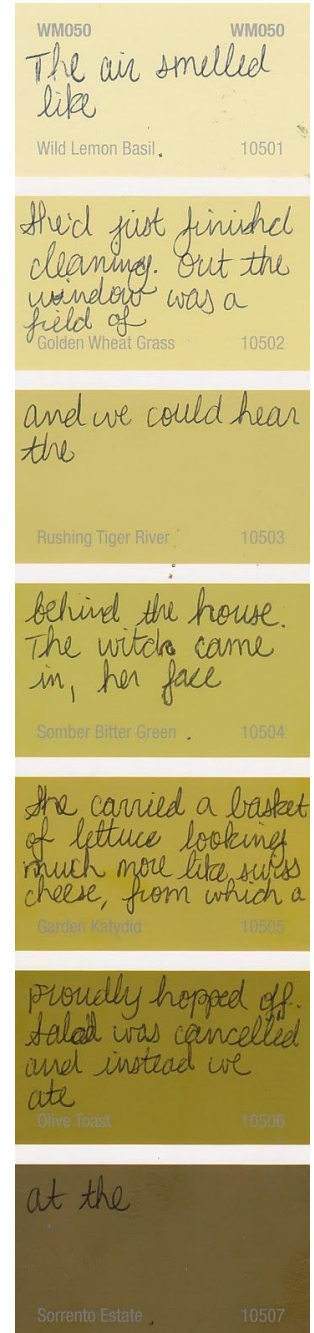 WM050 WM050
The air smelled
like
Wild Lemon Basil. 10501
She'd just finished
cleaning. Out the
window was a
field of
Golden Wheat Grass 10502
and we could hear
the
Rushing Tiger River 10503
behind the house.
The witch came
in, her face
Somber Bitter Green . 10504
She carried a basket
of lettuce looking
much more like swiss
cheese, from which a
Garden Katydid 10505
proudly hopped off.
Salad was cancelled
and instead we
ate
Olive Toast 10506
at the
Sorrento Estate . 10507